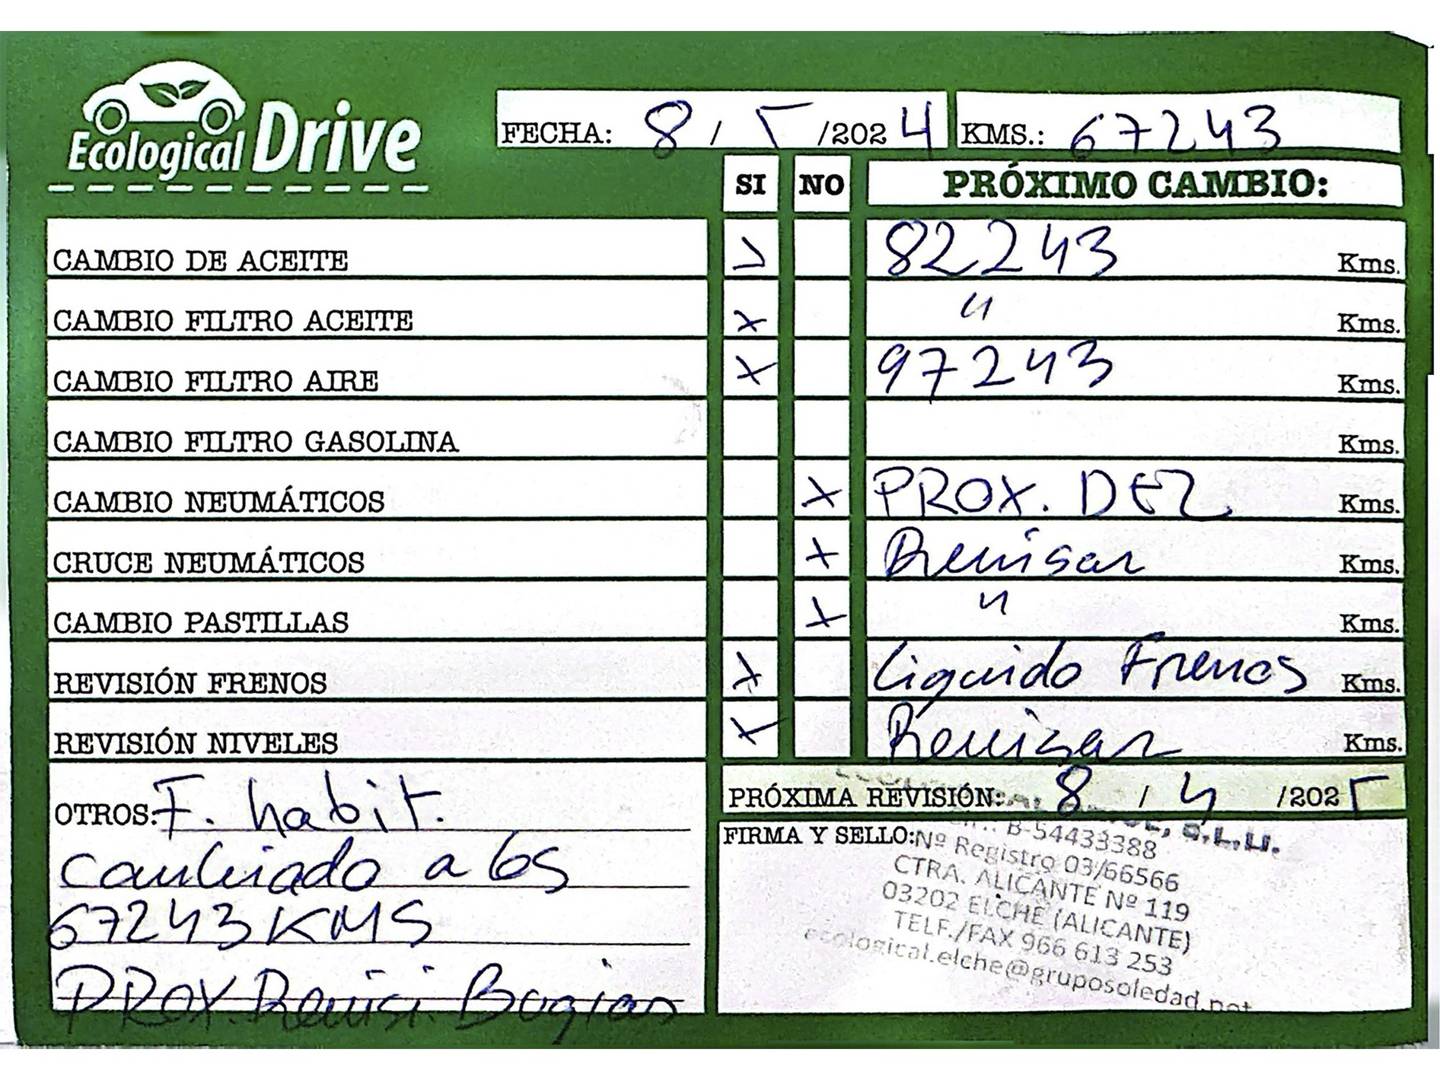 Ecological Drive
FECHA: 8 / 5 /2024 KMS.: 67243
SI NO PRÓXIMO CAMBIO:
CAMBIO DE ACEITE 82243 Kms.
CAMBIO FILTRO ACEITE X " Kms.
CAMBIO FILTRO AIRE X 97243 Kms.
CAMBIO FILTRO GASOLINA Kms.
CAMBIO NEUMÁTICOS X PROX. DEL Kms.
CRUCE NEUMÁTICOS X Revisar Kms.
CAMBIO PASTILLAS X " Kms.
REVISIÓN FRENOS X Liquido Frenos Kms.
REVISIÓN NIVELES X Revisar Kms.
OTROS: F. habit.
cambiado a los
67243 KMS
PROX. Revisi. Bugias
PRÓXIMA REVISIÓN: 8 / 4 /2025
FIRMA Y SELLO:
S.L.U.
B-54433388
Nº Registro 03/66566
CTRA. ALICANTE Nº 119
03202 ELCHE (ALICANTE)
TELF./FAX 966 613 253
ecological.elche@gruposoledad.net